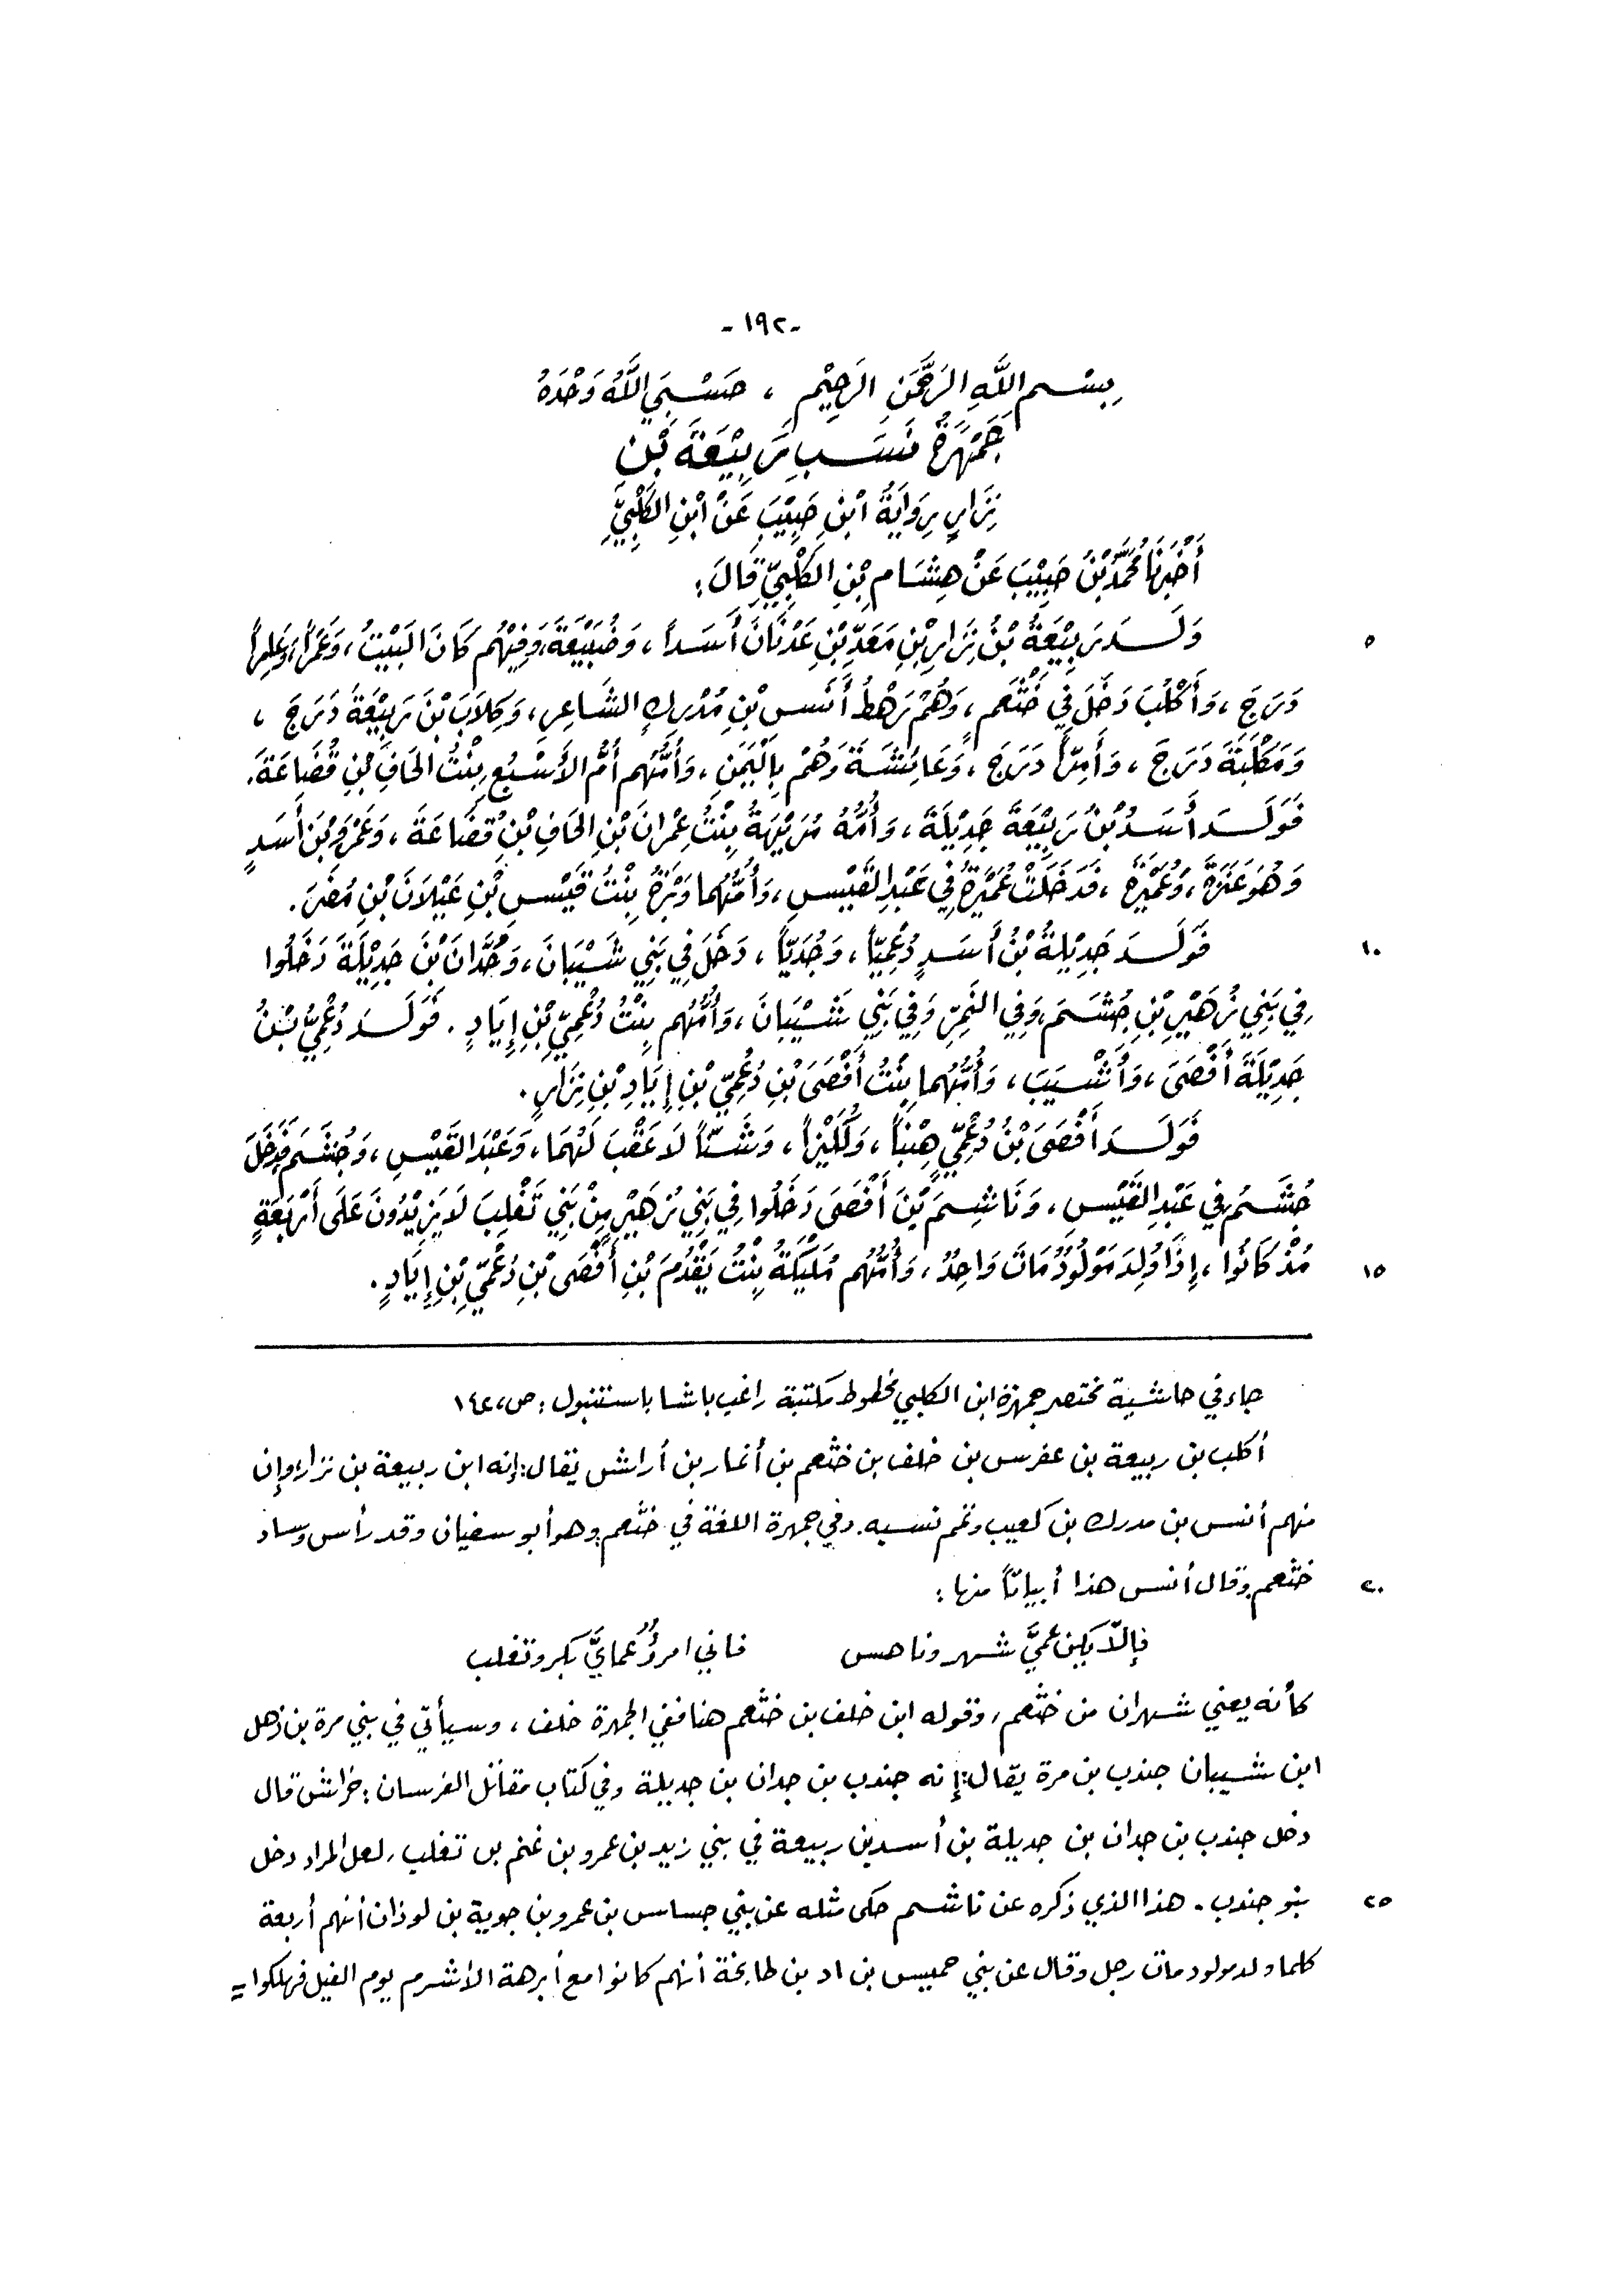 -١٩٢-
بِسْمِ اللَّهِ الرَّحْمَنِ الرَّحِيْمِ ، حَسْبِيَ اللَّهُ وَحْدَهُ
جَمْهَرَةُ نَسَبِ رَبِيْعَةَ بْنِ
نِزَارٍ بِرِوَايَةِ ابْنِ حَبِيْبَ عَنْ ابْنِ الكَلْبِيِّ
أَخْبَرَنَا مُحَمَّدُ بْنُ حَبِيْبَ عَنْ هِشَامِ بْنِ الكَلْبِيِّ قَالَ:
٥ وَلَدَ رَبِيْعَةُ بْنُ نِزَارِ بْنِ مَعَدِّ بْنِ عَدْنَانَ أَسَداً ، وَضُبَيْعَةَ، وَفِيْهُم كَانَ البَيْتُ، وَعَمْراً، وَعَامِراً
دَرَجَ ، وَأَكْلُبَ دَخَلَ فِي خَثْعَمٍ، وَهُمْ رَهْطُ أَنَسِ بْنِ مُدْرِكٍ الشَّاعِرِ، وَكِلَابَ بْنَ رَبِيْعَةَ دَرَجَ ،
وَمَكْلَبَةَ دَرَجَ ، وَأَمِرّاً دَرَجَ ، وَعَائِشَةَ وَهُمْ بِاليَمَنِ ، وَأُمُّهُم أُمُّ الأَسْبُعِ بِنْتُ الحَافِ بْنِ قُضَاعَةَ.
فَوَلَدَ أَسَدُ بْنُ رَبِيْعَةَ جَدِيْلَةَ ، وَأُمُّهُ مُرَيْهَةُ بِنْتُ عِمْرَانَ بْنِ الحَافِ بْنِ قُضَاعَةَ ، وَعَمْرَو بْنَ أَسَدٍ
وَهُوَ عَنَزَةُ ، وَعُمَيْرَةَ ، فَدَخَلَتْ عُمَيْرَةُ فِي عَبْدِ القَيْسِ ، وَأُمُّهُمَا وَبْرَةُ بِنْتُ قَيْسِ بْنِ عَيْلَانَ بْنِ مُضَرَ .
١٠ فَوَلَدَ جَدِيْلَةُ بْنُ أَسَدٍ دُعْمِيّاً ، وَجُدَيّاً ، دَخَلَ فِي بَنِي شَيْبَانَ ، وَجُدَّانَ بْنَ جَدِيْلَةَ دَخَلُوا
فِي بَنِي زُهَيْرِ بْنِ جُشَمَ، وَفِي النَّمِرِ وَفِي بَنِي شَيْبَانَ ، وَأُمُّهُم بِنْتُ دُعْمِيّ بْنِ إِيَادٍ . فَوَلَدَ دُعْمِيُّ بْنُ
جَدِيْلَةَ أَفْصَى ، وَأَشْيَبَ ، وَأُمُّهُمَا بِنْتُ أَفْصَى بْنِ دُعْمِيّ بْنِ إِيَادِ بْنِ نِزَارٍ .
فَوَلَدَ أَفْصَى بْنُ دُعْمِيٍّ هِنْباً ، وَلُكَيْزاً ، وَشَنّاً لَا عَقْبَ لَهُمَا ، وَعَبْدَ القَيْسِ ، وَجُشَمَ فَدَخَلَ
جُشَمُ فِي عَبْدِ القَيْسِ ، وَنَاشِمَ بْنَ أَفْصَى دَخَلُوا فِي بَنِي زُهَيْرٍ مِنْ بَنِي تَغْلِبَ لَا يَزِيْدُونَ عَلَى أَرْبَعَةٍ
١٥ مُذْ كَانُوا ، إِذَا وُلِدَ مَوْلُودٌ مَاتَ وَاحِدٌ ، وَأُمُّهُم مُلَيْكَةُ بِنْتُ يَقْدُمَ بْنِ أَفْصَى بْنِ دُعْمِيّ بْنِ إِيَادٍ .
جاء في حاشية مختصر جمهرة ابن الكلبي مخطوط مكتبة راغب باشا باستنبول : ص، ١٤٧
أكلب بن ربيعة بن عفرس بن خلف بن خثعم بن أنمار بن أراش يقال: إنه ابن ربيعة بن نزار، وإن
منهم أنس بن مدرك بن كعيب وتمم نسبه. وفي جمهرة اللغة في خثعم، وهو أبو سفيان وقد رأس وساد
٢٠ خثعم، وقال أنس هذا أبياتاً منها :
فإلّا يكن عميَّ شهر وناهس    فاني امرؤٌ عمايَّ بكر وتغلب
كأنه يعني شهران من خثعم، وقوله ابن خلف بن خثعم هنا ففي الجمهرة خلف ، وسيأتي في بني مرة بن ذهل
ابن شيبان جندب بن مرة يقال: إنه جندب بن جدان بن جديلة وفي كتاب مقاتل الفرسان : خراش قال
دخل جندب بن جدان بن جديلة بن أسد بن ربيعة في بني زيد بن عمرو بن غنم بن تغلب، لعل المراد دخل
٢٥ بنو جندب . هذا الذي ذكره عن ناشم حكى مثله عن بني جساس بن عمرو بن جوية بن لوذان أنهم أربعة
كلما ولد مولود مات رجل وقال عن بني حميس بن اد بن طابخة أنهم كانوا مع أبرهة الأشرم يوم الفيل فهلكوا =